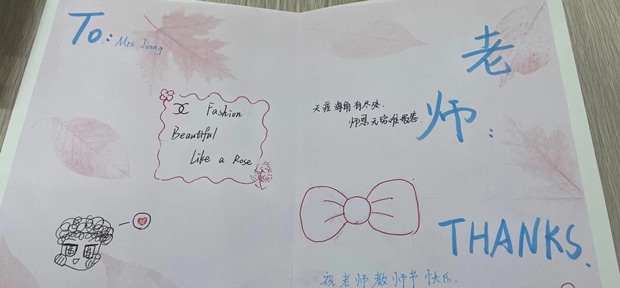 To: Mrs Jiang
Fashion
Beautiful
Like a Rose
老
师:
天涯海角有尽处,
师恩无穷难报答.
THANKS.
祝老师教师节快乐.